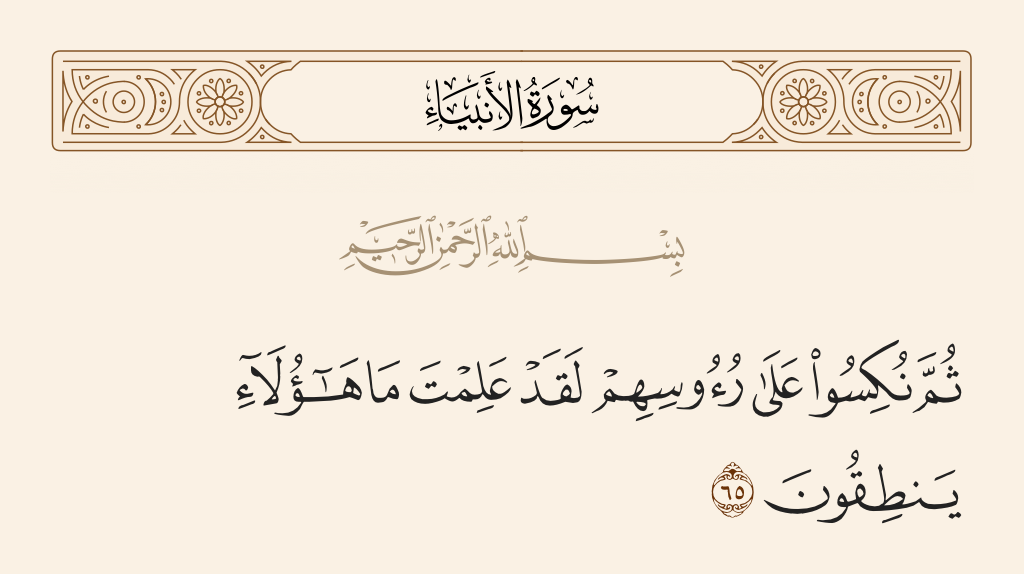 سُورَةُ الأَنبِيَاءِ
بِسْمِ ٱللَّهِ ٱلرَّحْمَٰنِ ٱلرَّحِيمِ
ثُمَّ نُكِسُوا۟ عَلَىٰ رُءُوسِهِمْ لَقَدْ عَلِمْتَ مَا هَـٰٓؤُلَآءِ
يَنطِقُونَ ٦٥